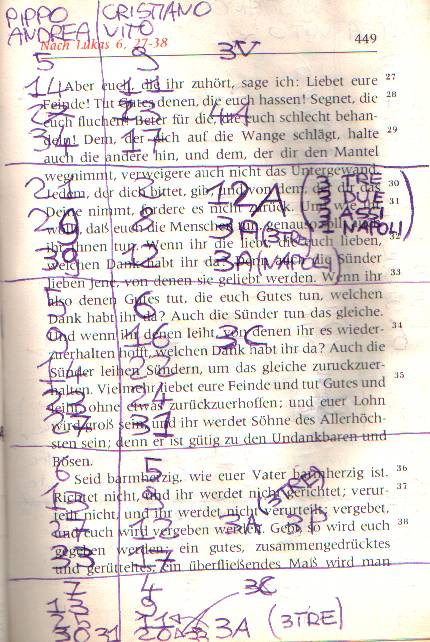 PIPPO / CRISTIANO
ANDREA / VITO
Nach Lukas 6, 27-38
449
5 9 3V
14 Aber euch, die ihr zuhört, sage ich: Liebet eure 27
Feinde! Tut Gutes denen, die euch hassen! Segnet, die 28
euch fluchen! Betet für die, die euch schlecht behan-
deln! Dem, der dich auf die Wange schlägt, halte 29
34 17
auch die andere hin, und dem, der dir den Mantel
wegnimmt, verweigere auch nicht das Untergewand.
Jedem, der dich bittet, gib; und von dem, der dir das 30
21 12A (3 TRE
3 DUE
3 ASSI
NAPOLI)
Deine nimmt, fordere es nicht zurück. Und wie ihr 31
wollt, daß euch die Menschen tun, genauso
29 8 3A (3TRE)
ihr ihnen tun. Wenn ihr die liebt, die euch lieben, 32
welchen Dank habt ihr da? Denn auch die Sünder
39 12 3A (NAPOLI)
lieben jene, von denen sie geliebt werden. Wenn ihr 33
also denen Gutes tut, die euch Gutes tun, welchen
5 6
Dank habt ihr da? Auch die Sünder tun das gleiche.
Und wenn ihr denen leiht, von denen ihr es wieder- 34
9 16 3C
zuerhalten hofft, welchen Dank habt ihr da? Auch die
Sünder leihen Sündern, um das gleiche zurückzuer-
14 22
halten. Vielmehr liebet eure Feinde und tut Gutes und 35
23 24
leiht, ohne etwas zurückzuerhoffen; und euer Lohn
wird groß sein, und ihr werdet Söhne des Allerhöch-
27 31
sten sein; denn er ist gütig zu den Undankbaren und
Bösen.
6 5
Seid barmherzig, wie euer Vater barmherzig ist. 36
Richtet nicht, und ihr werdet nicht gerichtet; verur- 37
13 9 (3TRE)
teilt nicht, und ihr werdet nicht verurteilt; vergebet,
und euch wird vergeben werden. Gebt, so wird euch 38
12 3A 3P
gegeben werden; ein gutes, zusammengedrücktes
23 17
und gerütteltes, ein überfließendes Maß wird man
7 4 3C
13 9
30 31 20 3A (3TRE)